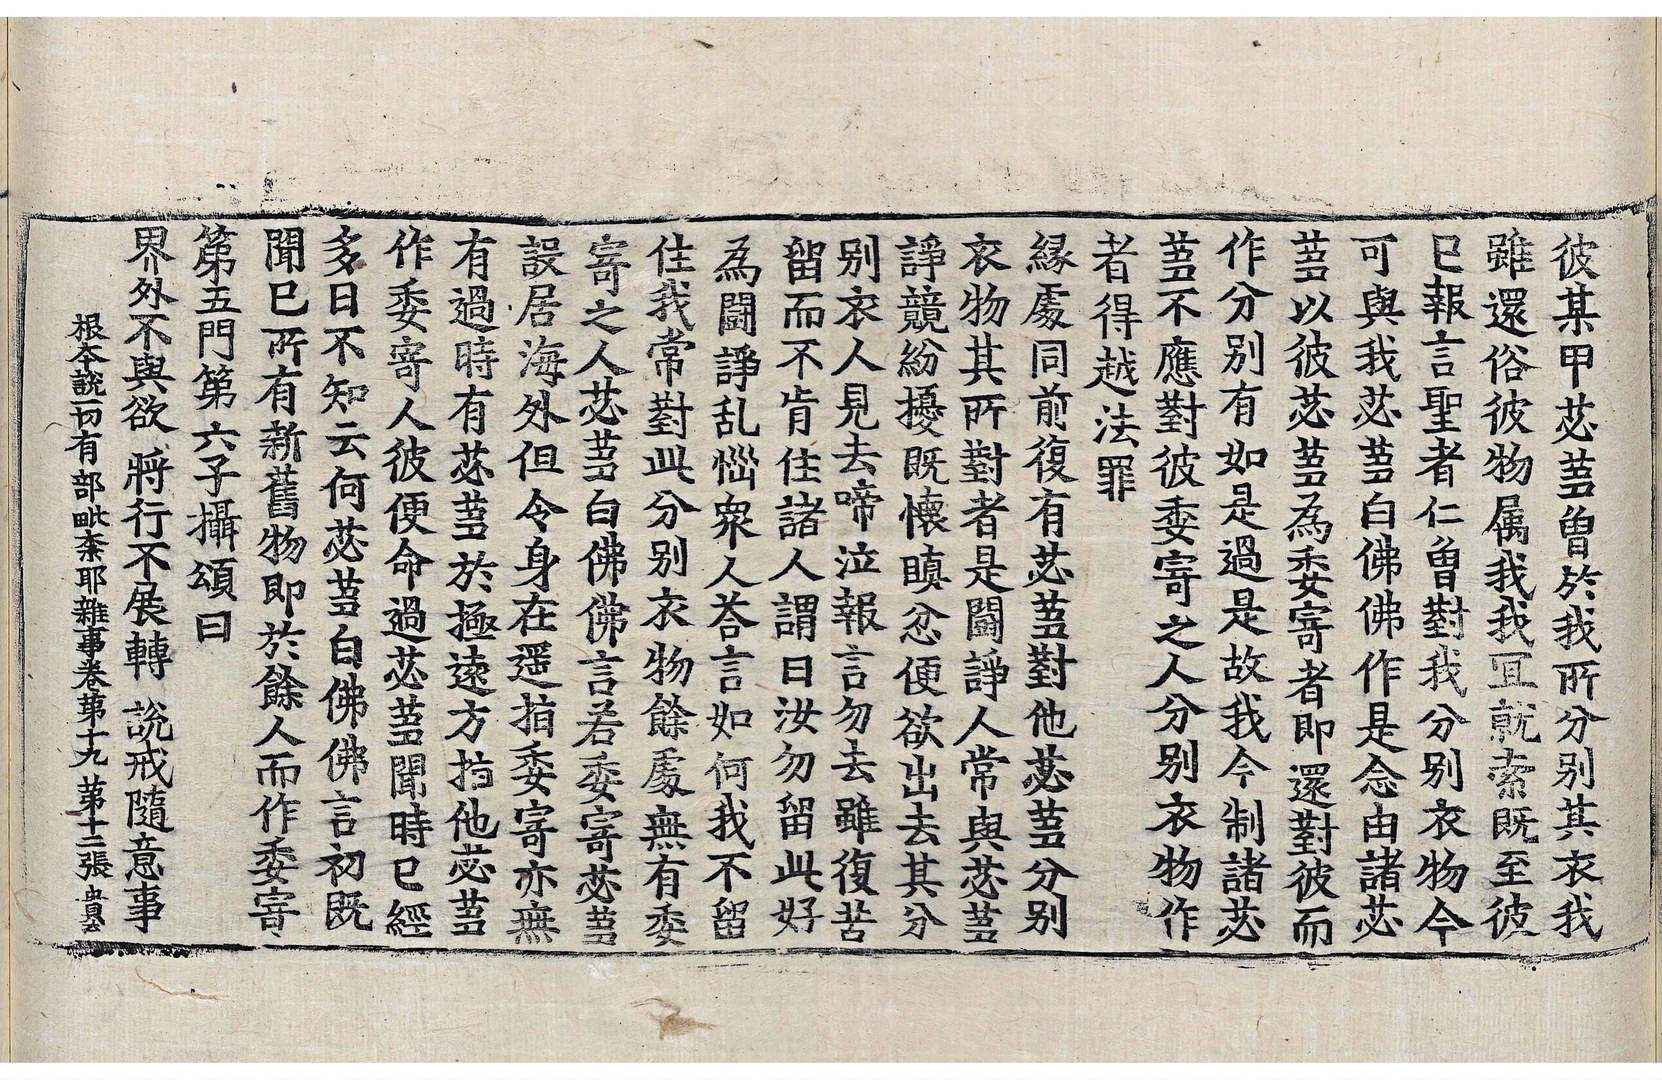 彼某甲苾蒭曾於我所分別其衣我
雖還俗彼物属我我冝就索既至彼
已報言聖者仁曾對我分別衣物今
可與我苾蒭白佛佛作是念由諸苾
蒭以彼苾蒭為委寄者即還對彼而
作分別有如是過是故我今制諸苾
蒭不應對彼委寄之人分別衣物作
者得越法罪
緣處同前復有苾蒭對他苾蒭分別
衣物其所對者是鬪諍人常與苾蒭
諍競紛擾既懷瞋忿便欲出去其分
別衣人見去啼泣報言勿去雖復苦
留而不肯住諸人謂曰汝勿留此好
為鬪諍乱惱衆人荅言如何我不留
住我常對此分別衣物餘處無有委
寄之人苾蒭白佛佛言若委寄苾蒭
設居海外但令身在遥指委寄亦無
有過時有苾蒭於極遠方指他苾蒭
作委寄人彼便命過苾蒭聞時已經
多日不知云何苾蒭白佛佛言初既
聞已所有新舊物即於餘人而作委寄
第五門第六子攝頌曰
界外不與欲 將行不展轉 說戒隨意事
根本說一切有部毗柰耶雜事卷第十九 第十三張